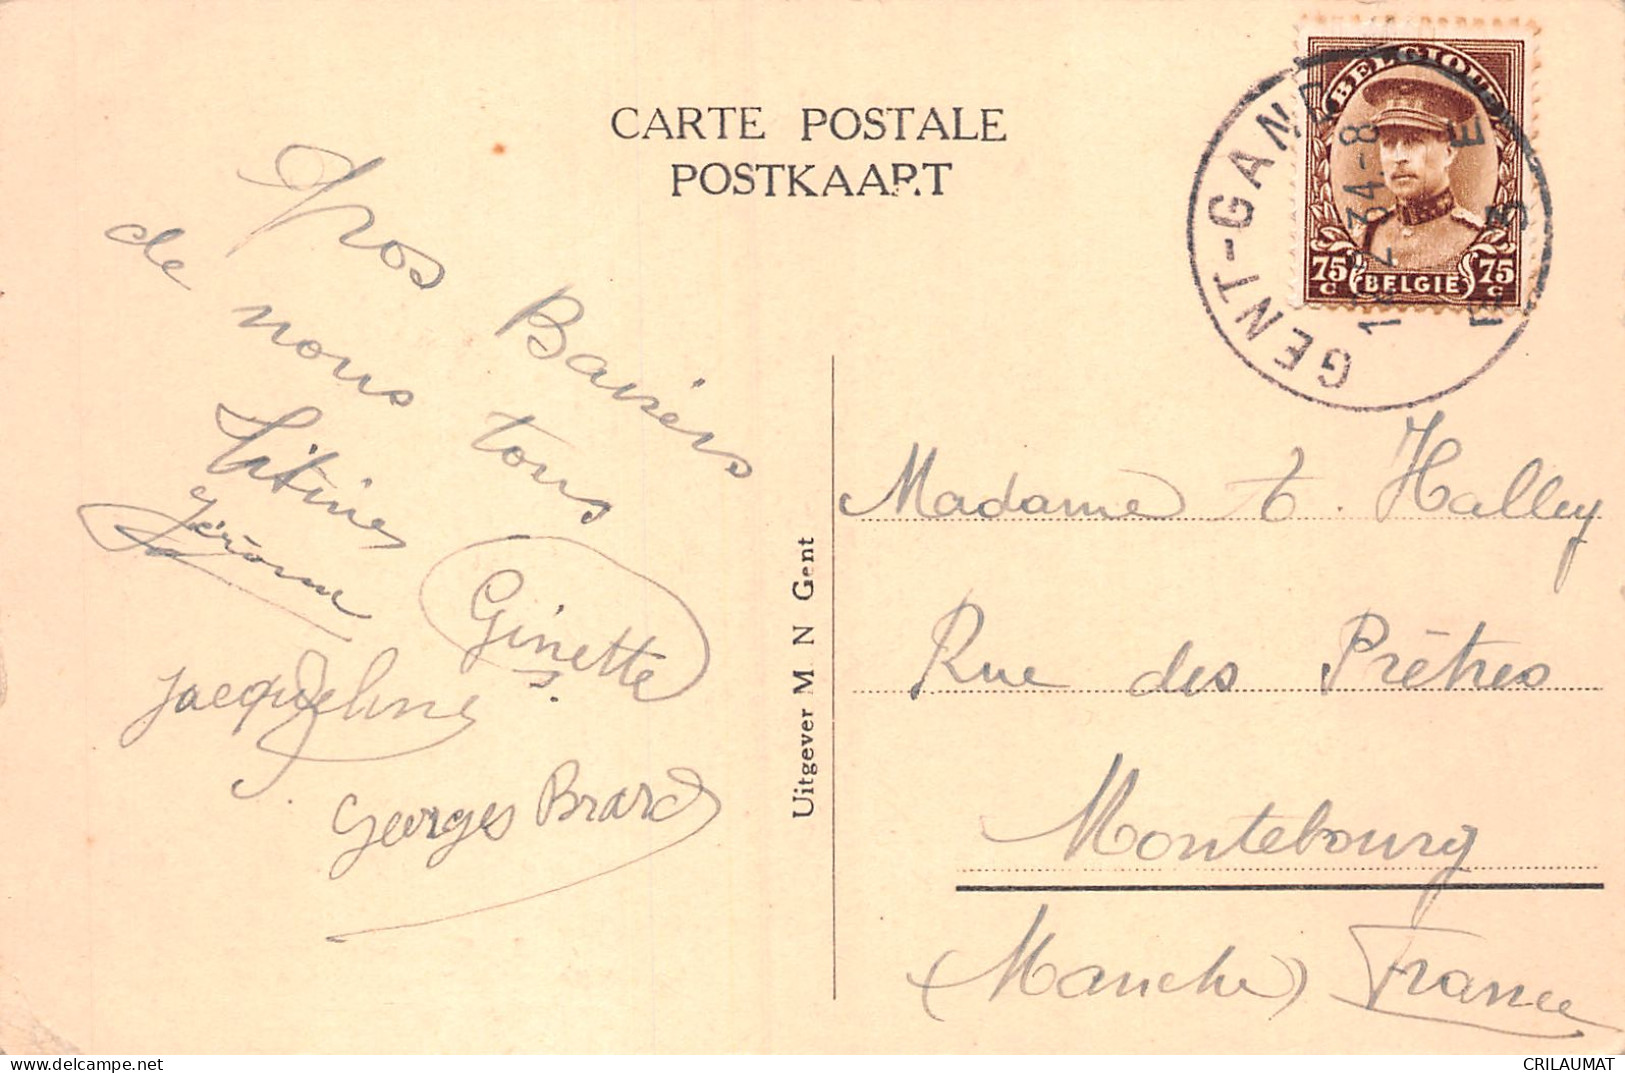 CARTE POSTALE
POSTKAART
BELGIQUE
75 C BELGIË 75 C
GENT-GAND
34.-8
E
Gros Baisers
de nous tous
Titine
Jérôme
Ginette
Jacqueline
Georges Brard
Uitgever M N Gent
Madame A. Halley
Rue des Prêtres
Montebourg
(Manche) France
CRILAUMAT